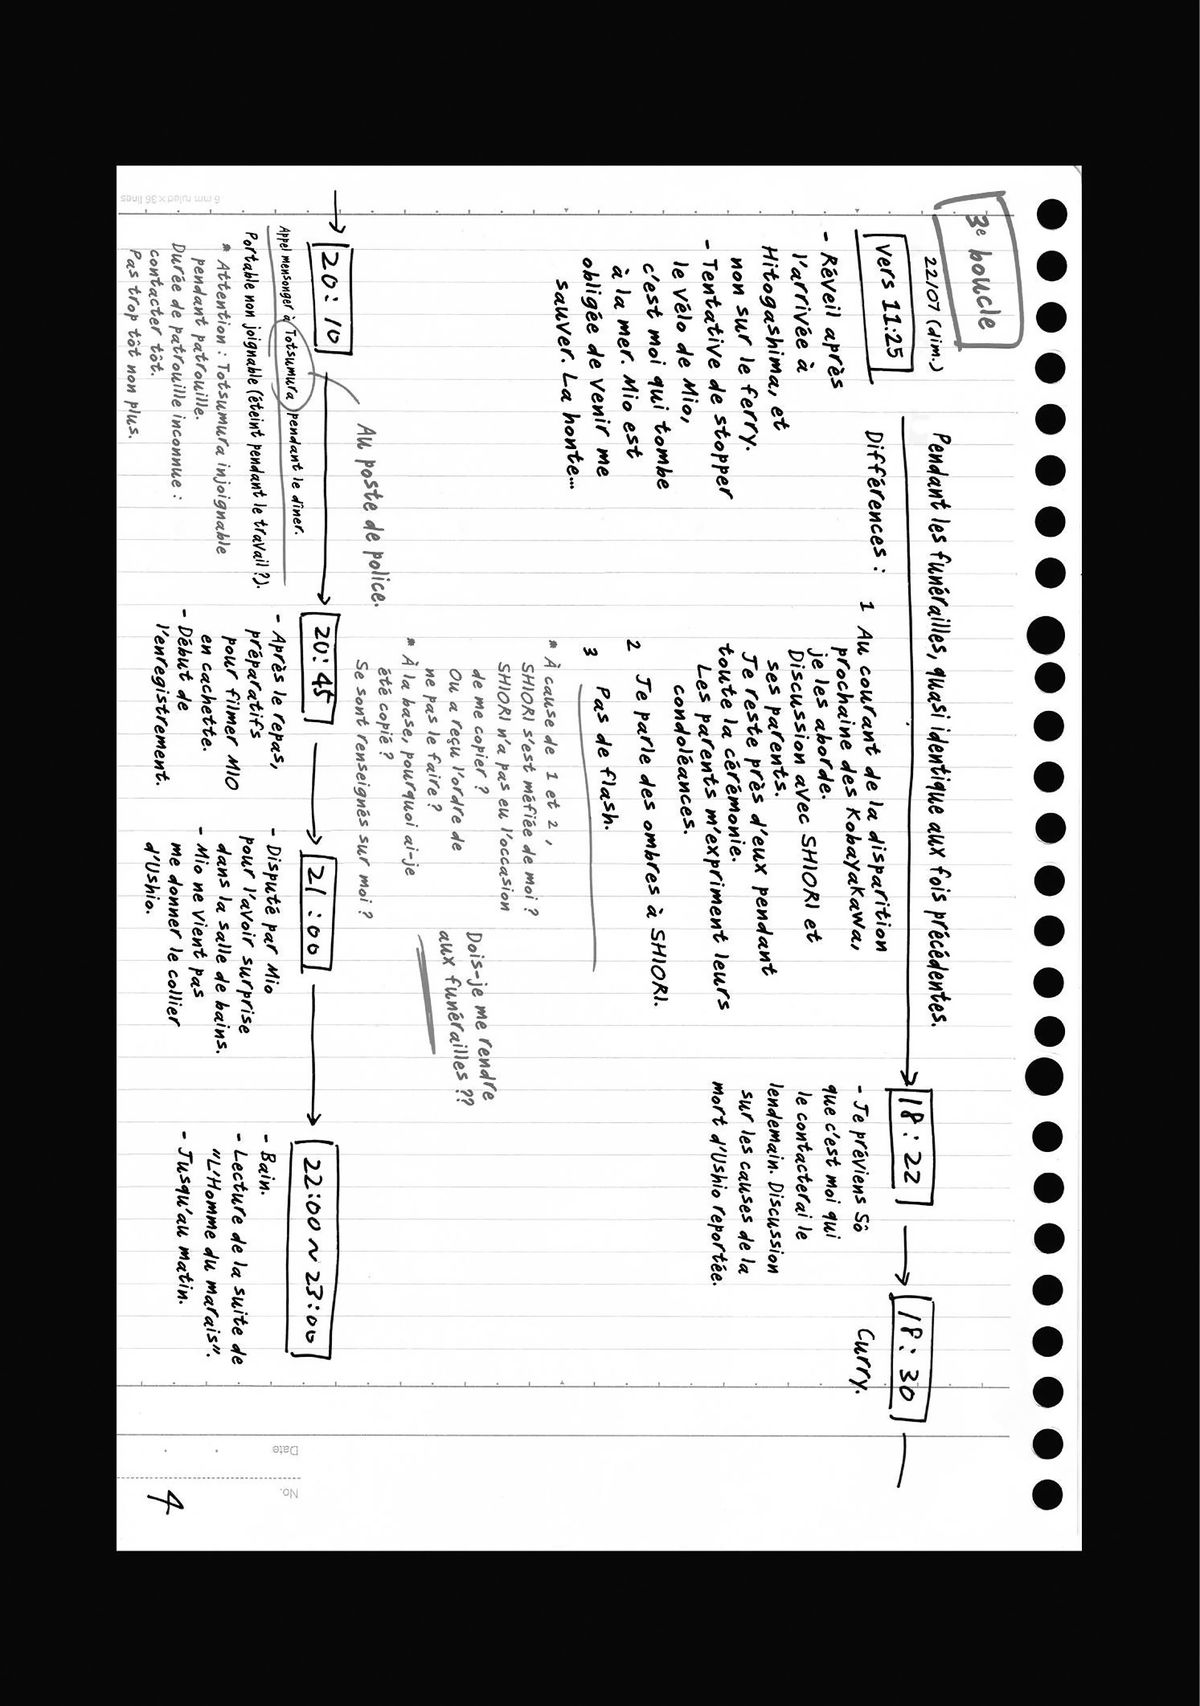 3e boucle
22/07 (dim.)
Vers 11:25
- Réveil après
l'arrivée à
Hitogashima, et
non sur le ferry.
- Tentative de stopper
le vélo de Mio,
c'est moi qui tombe
à la mer. Mio est
obligée de venir me
sauver. La honte...
Pendant les funérailles, quasi identique aux fois précédentes.
Différences :
1 Au courant de la disparition
prochaine des Kobayakawa,
je les aborde.
Discussion avec SHIORI et
ses parents.
Je reste près d'eux pendant
toute la cérémonie.
Les parents m'expriment leurs
condoléances.
2 Je parle des ombres à SHIORI.
3 Pas de flash.
* À cause de 1 et 2,
SHIORI s'est méfiée de moi ?
SHIORI n'a pas eu l'occasion
de me copier ?
Ou a reçu l'ordre de
ne pas le faire ?
* À la base, pourquoi ai-je
été copié ?
Se sont renseignés sur moi ?
Dois-je me rendre
aux funérailles ??
18:22
- Je préviens Sô
que c'est moi qui
le contacterai le
lendemain. Discussion
sur les causes de la
mort d'Ushio reportée.
18:30
Curry.
20:10
Au poste de police.
Appel mensonger à Totsumura pendant le dîner.
Portable non joignable (éteint pendant le travail ?).
* Attention : Totsumura injoignable
pendant patrouille.
Durée de patrouille inconnue :
contacter tôt.
Pas trop tôt non plus.
20:45
- Après le repas,
préparatifs
pour filmer MIO
en cachette.
- Début de
l'enregistrement.
21:00
- Disputé par Mio
pour l'avoir surprise
dans la salle de bains.
- Mio ne vient pas
me donner le collier
d'Ushio.
22:00 ~ 23:00
- Bain.
- Lecture de la suite de
"L'Homme du marais".
- Jusqu'au matin.
6 mm ruled x 36 lines
Date
No.
4